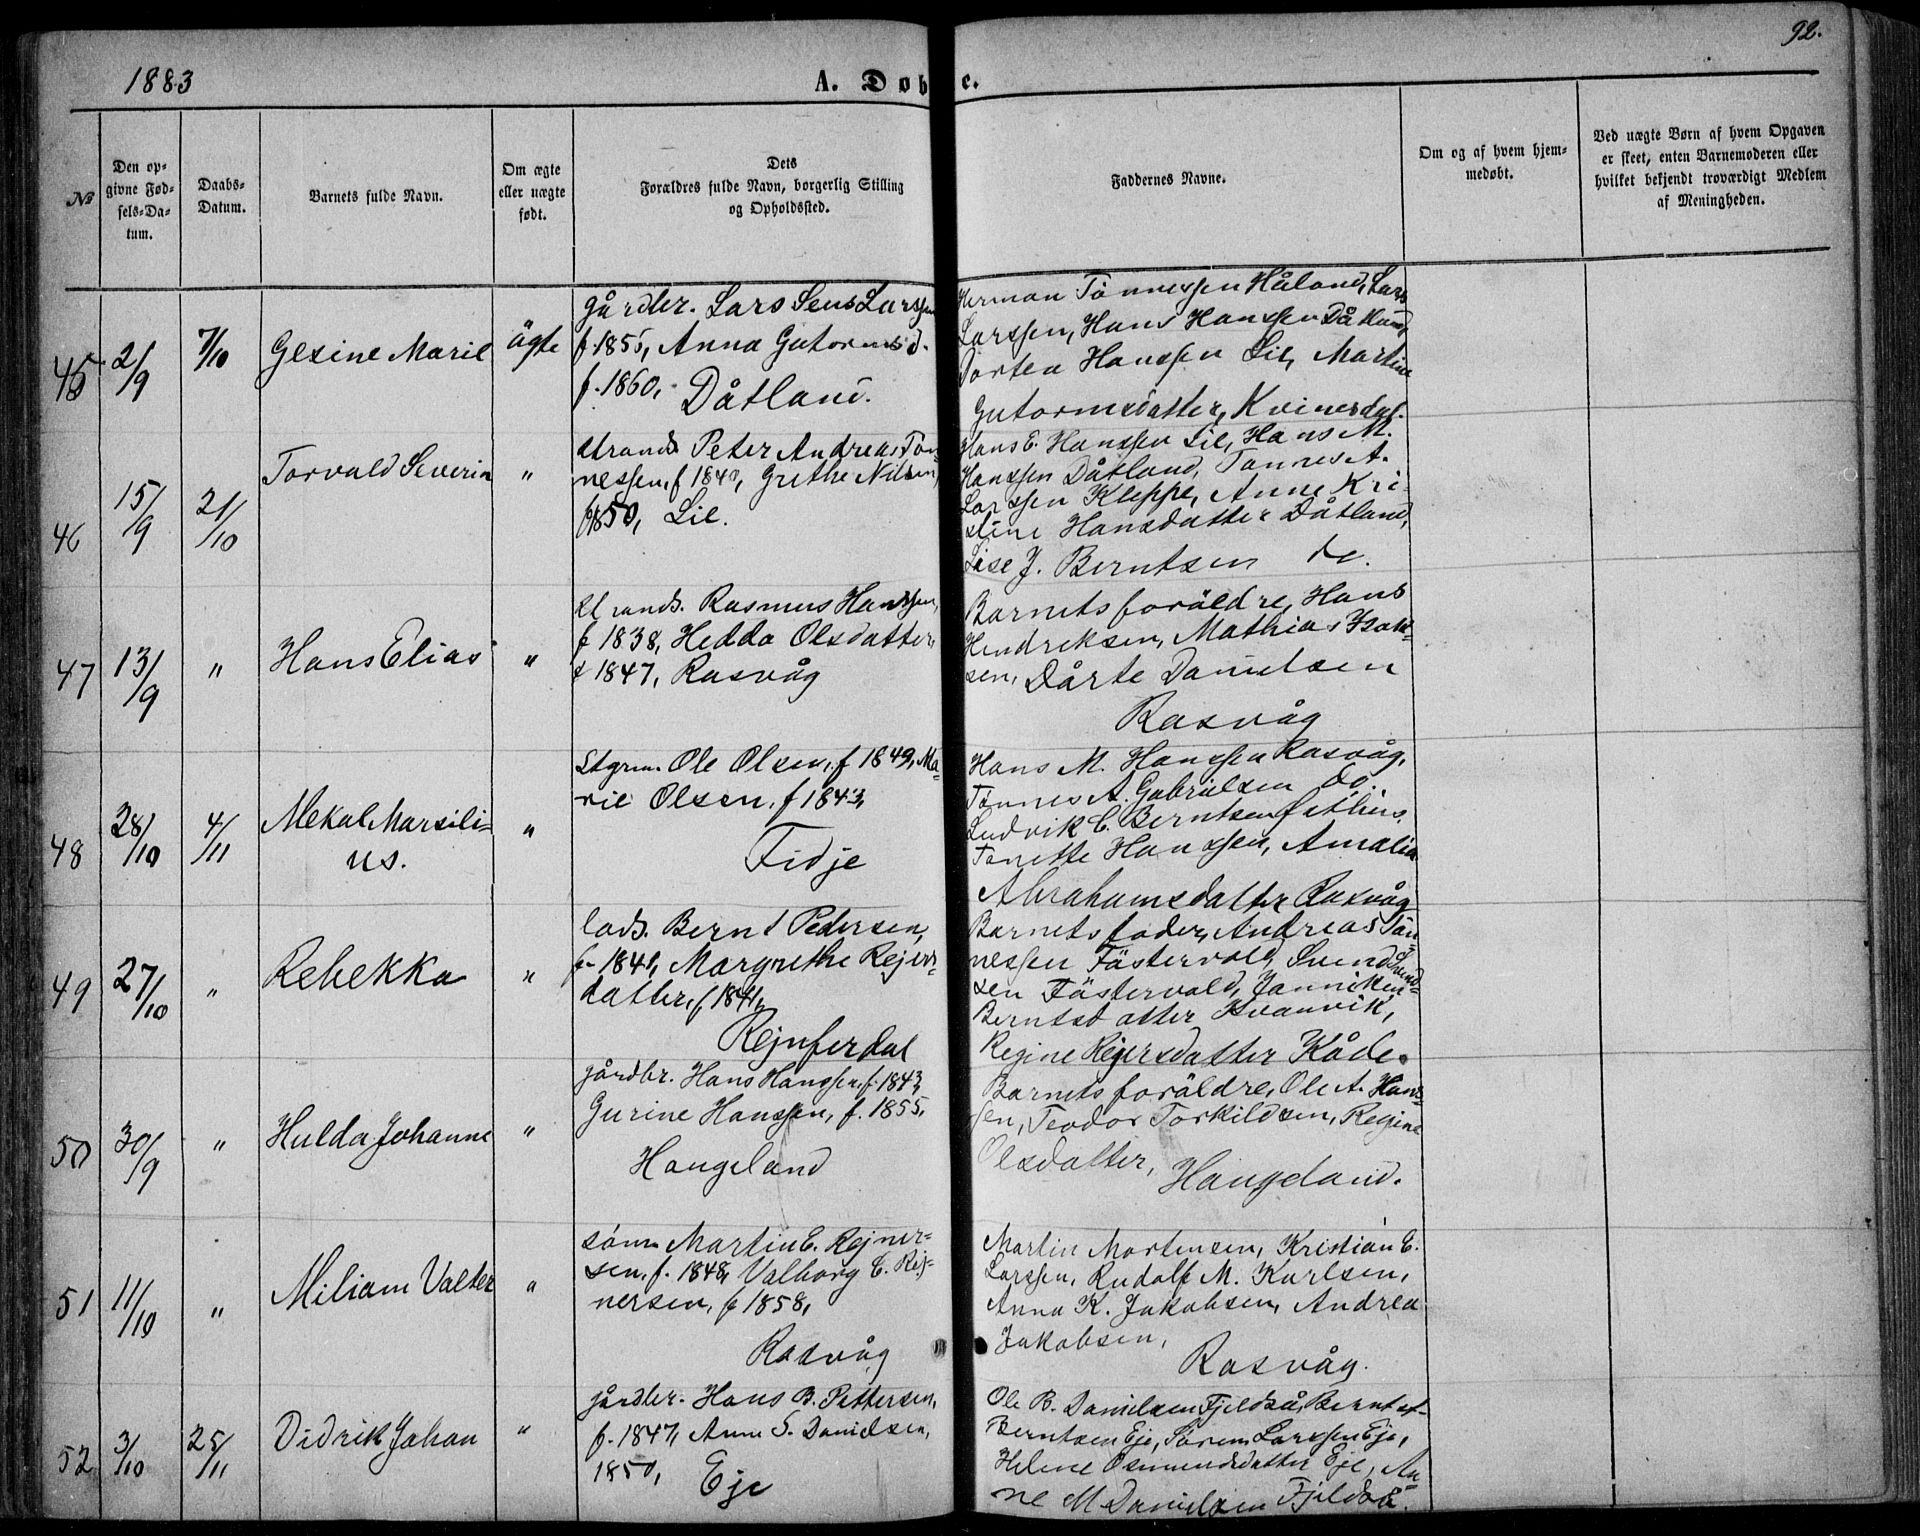 1883
A. Døbte.
92.
№
Den opgivne Fødsels-Datum.
Daabs-Datum.
Barnets fulde Navn.
Om ægte eller uægte født.
Dets Forældres fulde Navn, borgerlig Stilling og Opholdssted.
Faddernes Navne.
Om og af hvem hjemmedøbt.
Ved uægte Børn af hvem Opgaven er skeet, enten Barnemoderen eller hvilket bekjendt troværdigt Medlem af Meningheden.
45
2/9
7/10
Gesine Marie
ägte
gårdbr. Lars Larssen
f. 1855, Anna Gutormsd.
f. 1860, Dåtland.
Herman Tönnessen Håland, Lars
Larssen, Hans Hanssen Dåtland,
Dortea Hanssen Lie, Martine
Gutormsdatter, Kvinesdal.
46
15/9
21/10
Torvald Severin
"
strands. Peter Andreas Tön-
nessen, f 1840, Grethe Nilsen,
f 1850, Lie.
Hans E. Hanssen Lie, Hans M.
Hanssen Dåtland, Tönnes A.
Larssen Kleppe, Anne Kri-
stine Hansdatter Dåtland,
Lise J. Berntsen do.
47
13/9
"
Hans Elias
"
strands. Rasmus Hanssen,
f 1838, Hedda Olsdatter,
f 1847, Rasvåg
Barnets foräldre, Hans
Hendriksen, Mathias Isak-
sen, Dårte Danielsen
Rasvåg
48
28/10
4/11
Mekal Marsili-
us.
"
Stgrm. Ole Olsen, f 1849, Ma-
rie Olsen, f 1843,
Fidje
Hans M. Hanssen Rasvåg,
Tönnes A. Gabrielsen do.
Ludvik C. Berntsen
Tonette Hanssen, Amalia
Abrahamsdatter Rasvåg
49
27/10
"
Rebekka
"
lods. Bernt Pedersen,
f. 1841, Margrethe Rejers-
datter, f 1841,
Rejnferdal
Barnets fader, Andreas Tön-
nessen Fästervold, Svend Svend-
sen Fästervold, Janniken
Berntsdatter Kvanvik,
Regine Rejersdatter Kåde.
50
30/9
"
Hulda Johanne
"
gårdbr. Hans Hanssen, f. 1843,
Gurine Hanssen, f. 1855,
Haugeland
Barnets foräldre, Ole A. Hans-
sen, Teodor Torkildsen, Regine
Olsdatter, Haugeland.
51
11/10
"
Miliam Valter
"
sömn Martin E. Rejner-
sen, f. 1848, Valborg C. Rej-
nersen, f 1858,
Rasvåg
Martin Mortensen, Kristian E.
Larssen, Rudolf M. Karlsen,
Anna K. Jakobsen, Andrea
Jakobsen,
Rasvåg.
52
3/10
25/11
Didrik Johan
"
gårdbr. Hans B. Pettersen,
f. 1847, Anne S. Danielsen,
1850, Eje
Ole B. Danielsen Fjeldså, Bernt
Berntsen Eje, Sören Larssen Eje,
Helene Osmundsdatter Eje, An-
ne M Danielsen Fjeldså.